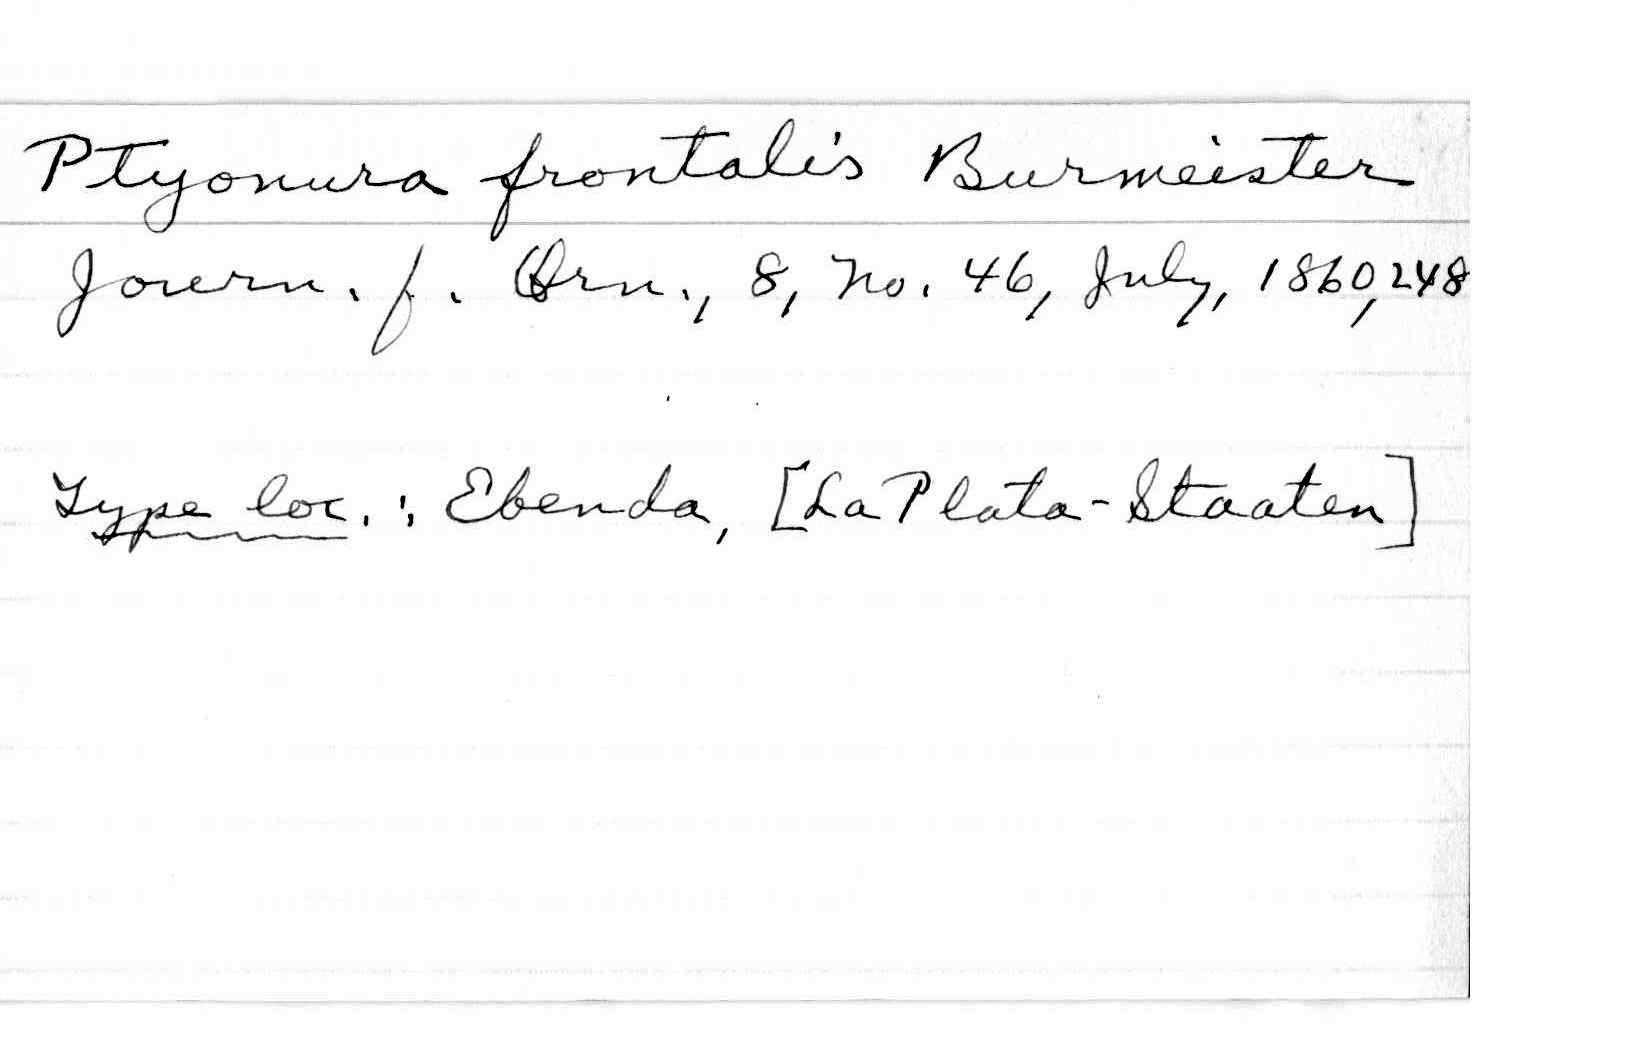 Ptyonura frontalis Burmeister
Journ. f. Orn., 8, No. 46, July, 1860, 248
Type loc.: Ebenda, [La Plata-Staaten]